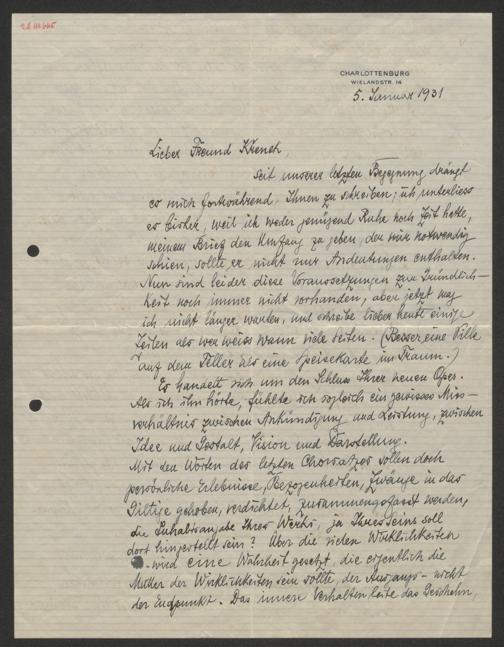 CHARLOTTENBURG
WIELANDSTR. 14
5. Januar 1931
Lieber Freund Křenek,
seit unserer letzten Begegnung drängt
es mich fortwährend, Ihnen zu schreiben; ich unterliess
es bisher, weil ich weder genügend Ruhe noch Zeit hatte,
meinem Brief den Umfang zu geben, der mir notwendig
schien, sollte er nicht nur Andeutungen enthalten.
Nun sind leider diese Voraussetzungen zur Gründlich-
keit noch immer nicht vorhanden, aber jetzt mag
ich nicht länger warten, und schreibe lieber heute einige
Zeilen als wer weiss wann viele Seiten. (Besser eine
auf dem Teller als eine Speisekarte im Traum.)
Es handelt sich um den Schluss Ihrer neuen Oper.
Als ich ihn hörte, fühlte ich sogleich ein gewisses Miss-
verhältnis zwischen Ankündigung und Leistung, zwischen
Idee und Gestalt, Vision und Darstellung.
Mit den Worten des letzten Chorsatzes sollen doch
persönliche Erlebnisse, Bezogenheiten, Zwänge in das
Giltige gehoben, verdichtet, zusammengefasst werden,
die Inhaltsangabe Ihres Werks, ja Ihres Seins soll
dort hingestellt sein? Über die vielen Wirklichkeiten
wird eine Wahrheit gesetzt, die eigentlich die
Mutter der Wirklichkeiten sein sollte, der Ausgangs- nicht
der Endpunkt. Das innere Verhalten leite das Geschehn,